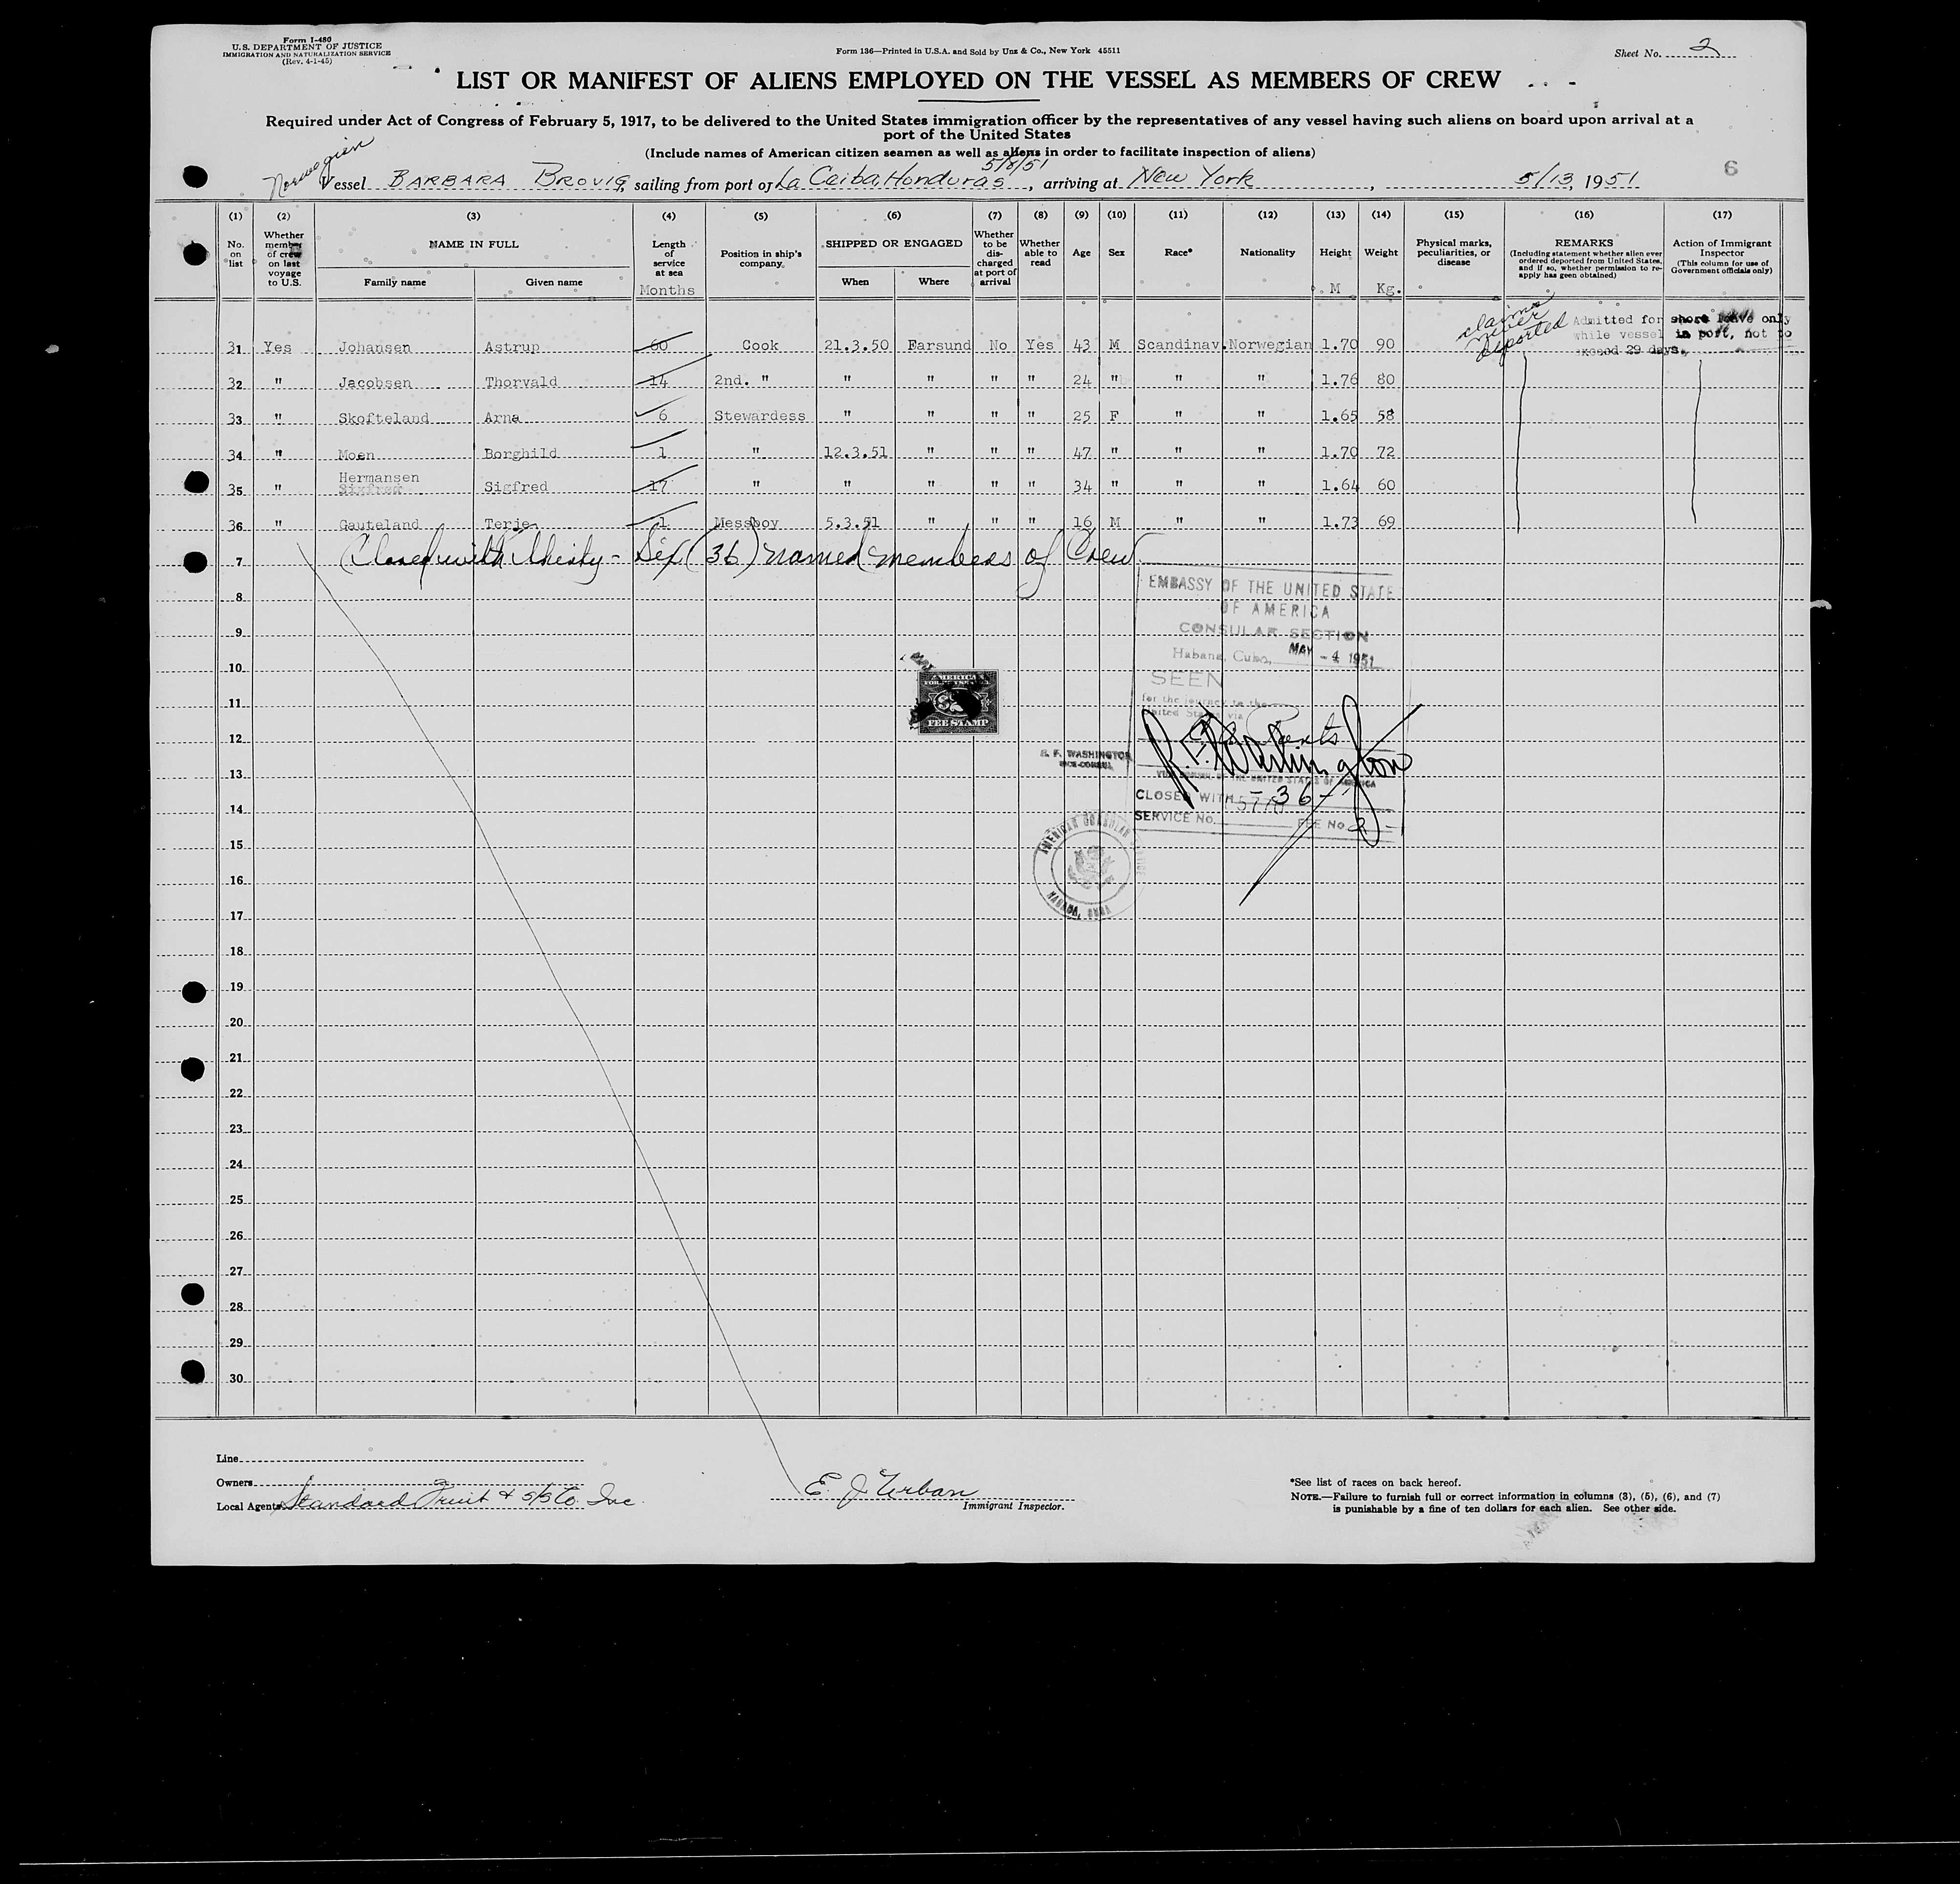 Form I-480
U.S. DEPARTMENT OF JUSTICE
IMMIGRATION AND NATURALIZATION SERVICE
(Rev. 4-1-45)
Form 136—Printed in U.S.A. and Sold by Unz & Co., New York 45511
Sheet No. 2
LIST OR MANIFEST OF ALIENS EMPLOYED ON THE VESSEL AS MEMBERS OF CREW
Required under Act of Congress of February 5, 1917, to be delivered to the United States immigration officer by the representatives of any vessel having such aliens on board upon arrival at a
port of the United States
(Include names of American citizen seamen as well as aliens in order to facilitate inspection of aliens)
Norwegian
5/8/51
Vessel BARBARA BROVIG, sailing from port of La Ceiba, Honduras, arriving at New York, 5/13, 1951
6
(1) (2) (3) (4) (5) (6) (7) (8) (9) (10) (11) (12) (13) (14) (15) (16) (17)
No. on list
Whether member of crew on last voyage to U.S.
NAME IN FULL
Family name
Given name
Length of service at sea
Months
Position in ship's company
SHIPPED OR ENGAGED
When
Where
Whether to be discharged at port of arrival
Whether able to read
Age
Sex
Race*
Nationality
Height
M
Weight
Kg.
Physical marks, peculiarities, or disease
REMARKS
(Including statement whether alien ever ordered deported from United States, and if so, whether permission to reapply has been obtained)
Action of Immigrant Inspector
(This column for use of Government officials only)
claims never deported
Admitted for shore leave only
while vessel in port, not to
exceed 29 days.
31 Yes Johansen Astrup 60 Cook 21.3.50 Farsund No Yes 43 M Scandinav. Norwegian 1.70 90
32 " Jacobsen Thorvald 14 2nd. " " " " " 24 " " " 1.76 80
33 " Skofteland Arna 6 Stewardess " " " " 25 F " " 1.65 58
34 " Moen Borghild 1 " 12.3.51 " " " 47 " " " 1.70 72
35 " Hermansen Sigfred 17 " " " " " 34 " " " 1.64 60
36 " Gauteland Terje 1 Messboy 5.3.51 " " " 16 M " " 1.73 69
7 Closed with Thirty-Six (36) named members of Crew
8
9
10
11
12
13
14
15
16
17
18
19
20
21
22
23
24
25
26
27
28
29
30
EMBASSY OF THE UNITED STATE
OF AMERICA
CONSULAR SECTION
Habana, Cuba, MAY -4 1951
SEEN
for the journey to the
United States via
R. F. Washington
VICE CONSUL OF THE UNITED STATES OF AMERICA
CLOSED WITH -36-
SERVICE No. FEE No.
AMERICAN
FEE STAMP
R. F. WASHINGTON
VICE-CONSUL
AMERICAN CONSULAR
HABANA, CUBA
Line
Owners
Local Agents Standard Fruit & S/S Co. Inc.
E. J. Urban
Immigrant Inspector.
*See list of races on back hereof.
NOTE.—Failure to furnish full or correct information in columns (3), (5), (6), and (7)
is punishable by a fine of ten dollars for each alien. See other side.